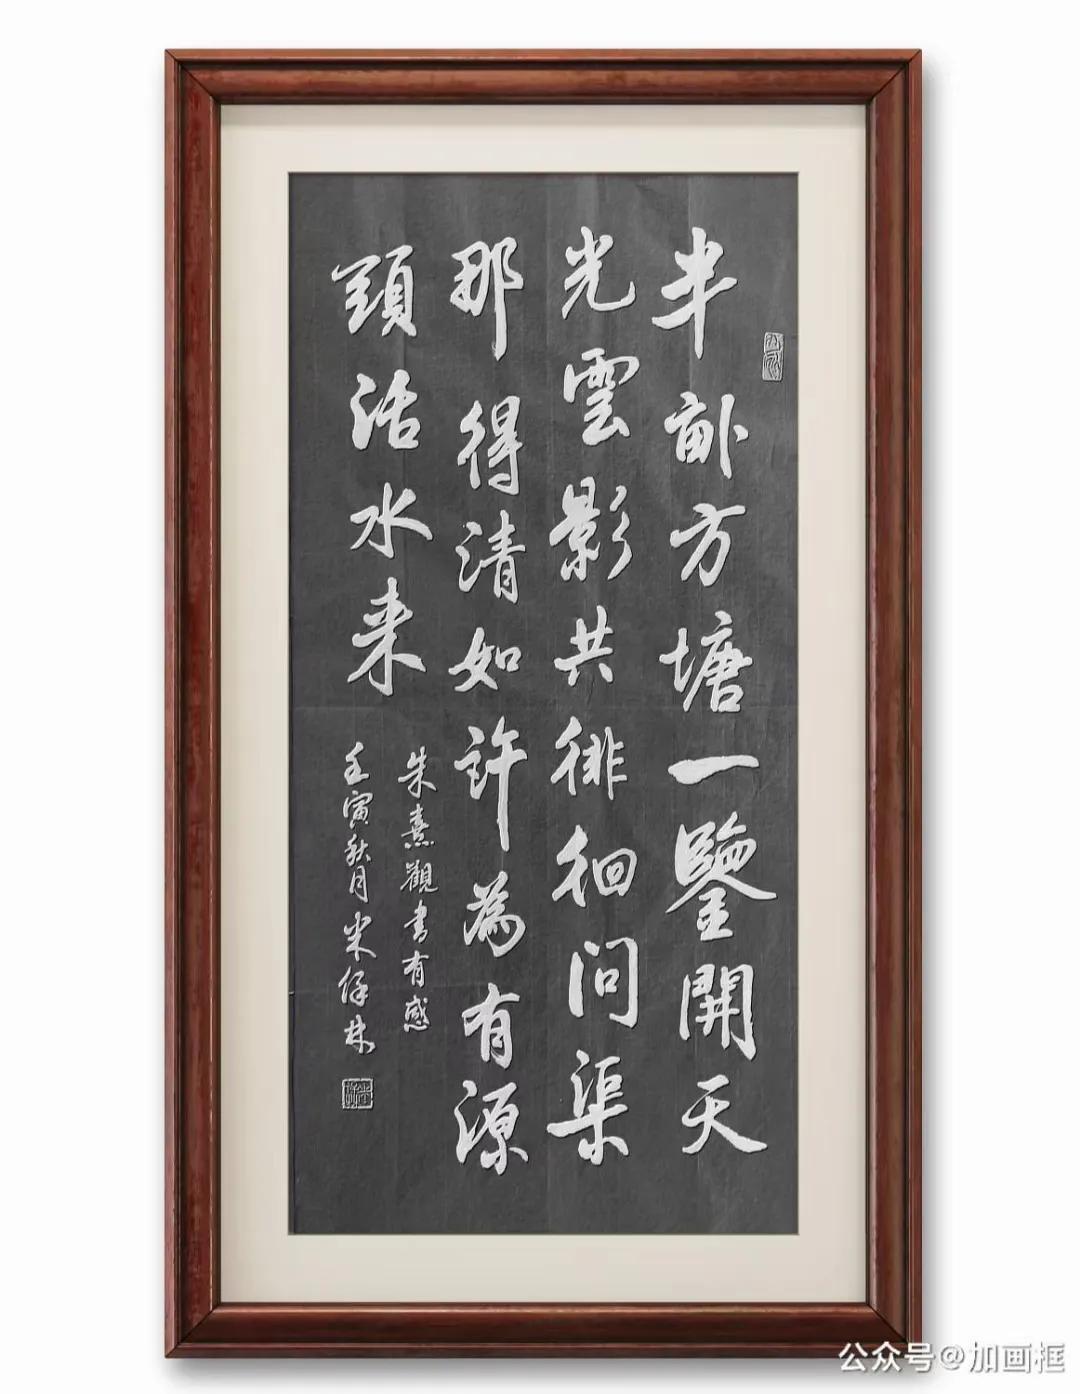 半畝方塘一鑒開天
光雲影共徘徊問渠
那得清如許為有源
頭活水来
朱熹觀書有感
壬寅秋月米保林
公众号@加画框